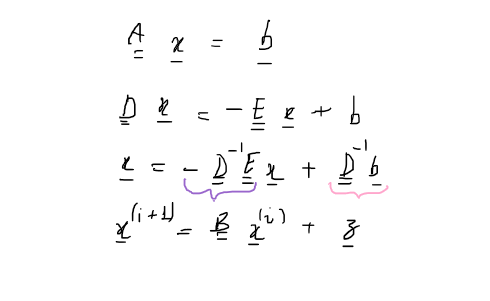 A x = b
D x = - E x + b
x = - D⁻¹ E x + D⁻¹ b
x⁽ⁱ⁺¹⁾ = B x⁽ⁱ⁾ + z